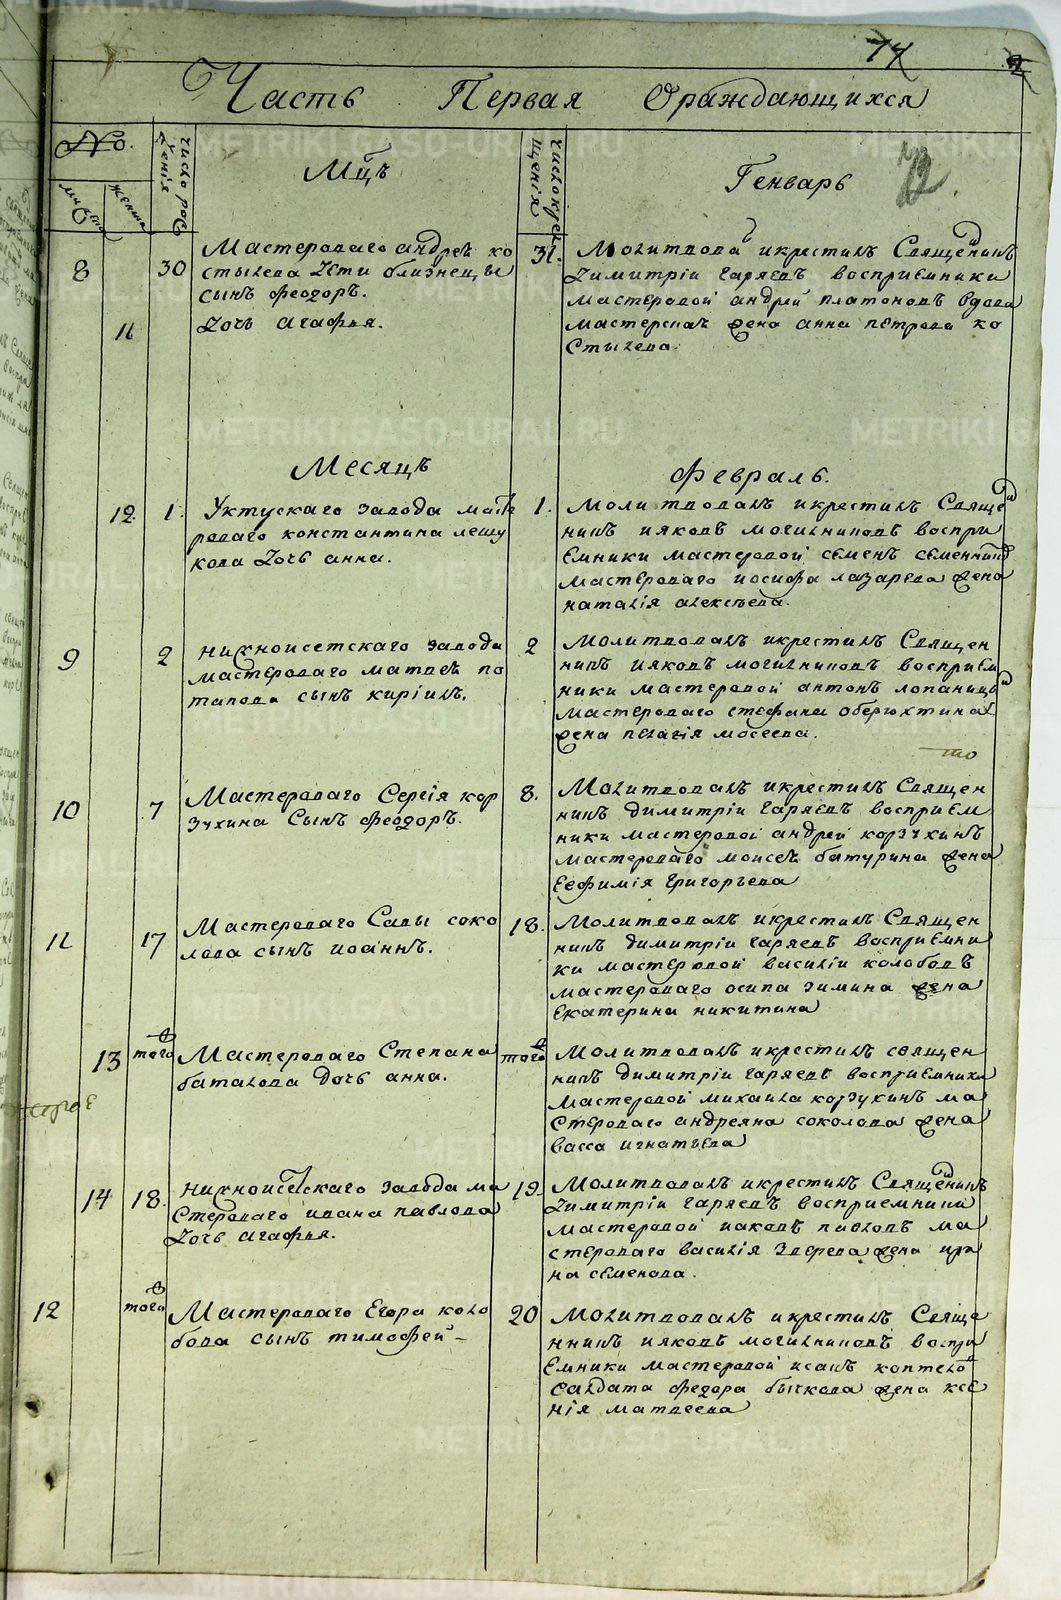 Часть Первая Ораждающихся
No.
число рожденія
Мцъ
число крещенія
Генварь
мужеска
женска
8
11
30
Мастероваго андрея ко
стылева Дети близнецы
сынъ феодоръ.
Дочь агафья.
31.
Молитвовалъ и крестилъ Священникъ
Димитріи гаряевъ восприемники
мастеровой андрей платоновъ вдова
мастерская жена анна петрова ко
стылева.
Месяцъ
Февраль.
12.
1.
Уктускаго завода масте
роваго константина лешу
кова Дочь анна.
1.
Молитвовалъ и крестилъ Священ
никъ ияковъ могильниковъ воспри
емники мастеровой семенъ
мастероваго иосифа лазарева жена
наталія алексѣева.
9
2
нижноисетскаго завода
мастероваго матвея по
тапова сынъ кирилъ.
2
Молитвовалъ и крестилъ Священ
никъ ияковъ могильниковъ восприем
ники мастеровой антонъ
мастероваго стефана обертюхтина
жена пелагія мосеева.
10
7
Мастероваго Сергія кор
зухина Сынъ феодоръ.
8.
Молитвовалъ и крестилъ Священ
никъ димитріи гаряевъ восприем
ники мастеровой андрей корзухинъ
мастероваго моисея батурина жена
Еефимія григорьева
11
17
Мастероваго Савы соко
лова сынъ иоаннъ.
18.
Молитвовалъ и крестилъ Священ
никъ димитріи гаряевъ восприемни
ки мастеровой василіи колобовъ
мастероваго осипа зимина жена
Екатерина никитина
13
тогож
Мастероваго Степана
баталова Дочь анна.
тогож
Молитвовалъ и крестилъ священ
никъ димитріи гаряевъ восприемники
мастеровой михаила корзухинъ ма
стероваго андреяна соколова жена
васса игнатьева
14
18.
нижноисетскаго завода ма
Стероваго ивана павлова
Дочь агафья.
19.
Молитвовалъ и крестилъ Священникъ
Димитріи гаряевъ восприемники
мастеровой иаковъ павловъ ма
стероваго василія зверева жена ири
на семенова.
12
тогож
Мастероваго Егора коло
бова сынъ тимофей
20
Молитвовалъ и крестилъ Свяще
нникъ ияковъ могильниковъ воспри
емники мастеровой исакъ коптелов
Салдата федора бычкова жена ксе
нія матвеева
METRIKI.GASO-URAL.RU